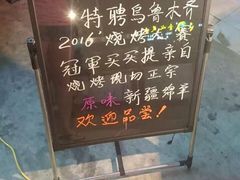 ·特聘烏鲁木齐
2016'烧烤大赛
冠軍买买提亲自
烧烤现场正宗
原味新疆绵羊
欢迎品尝!